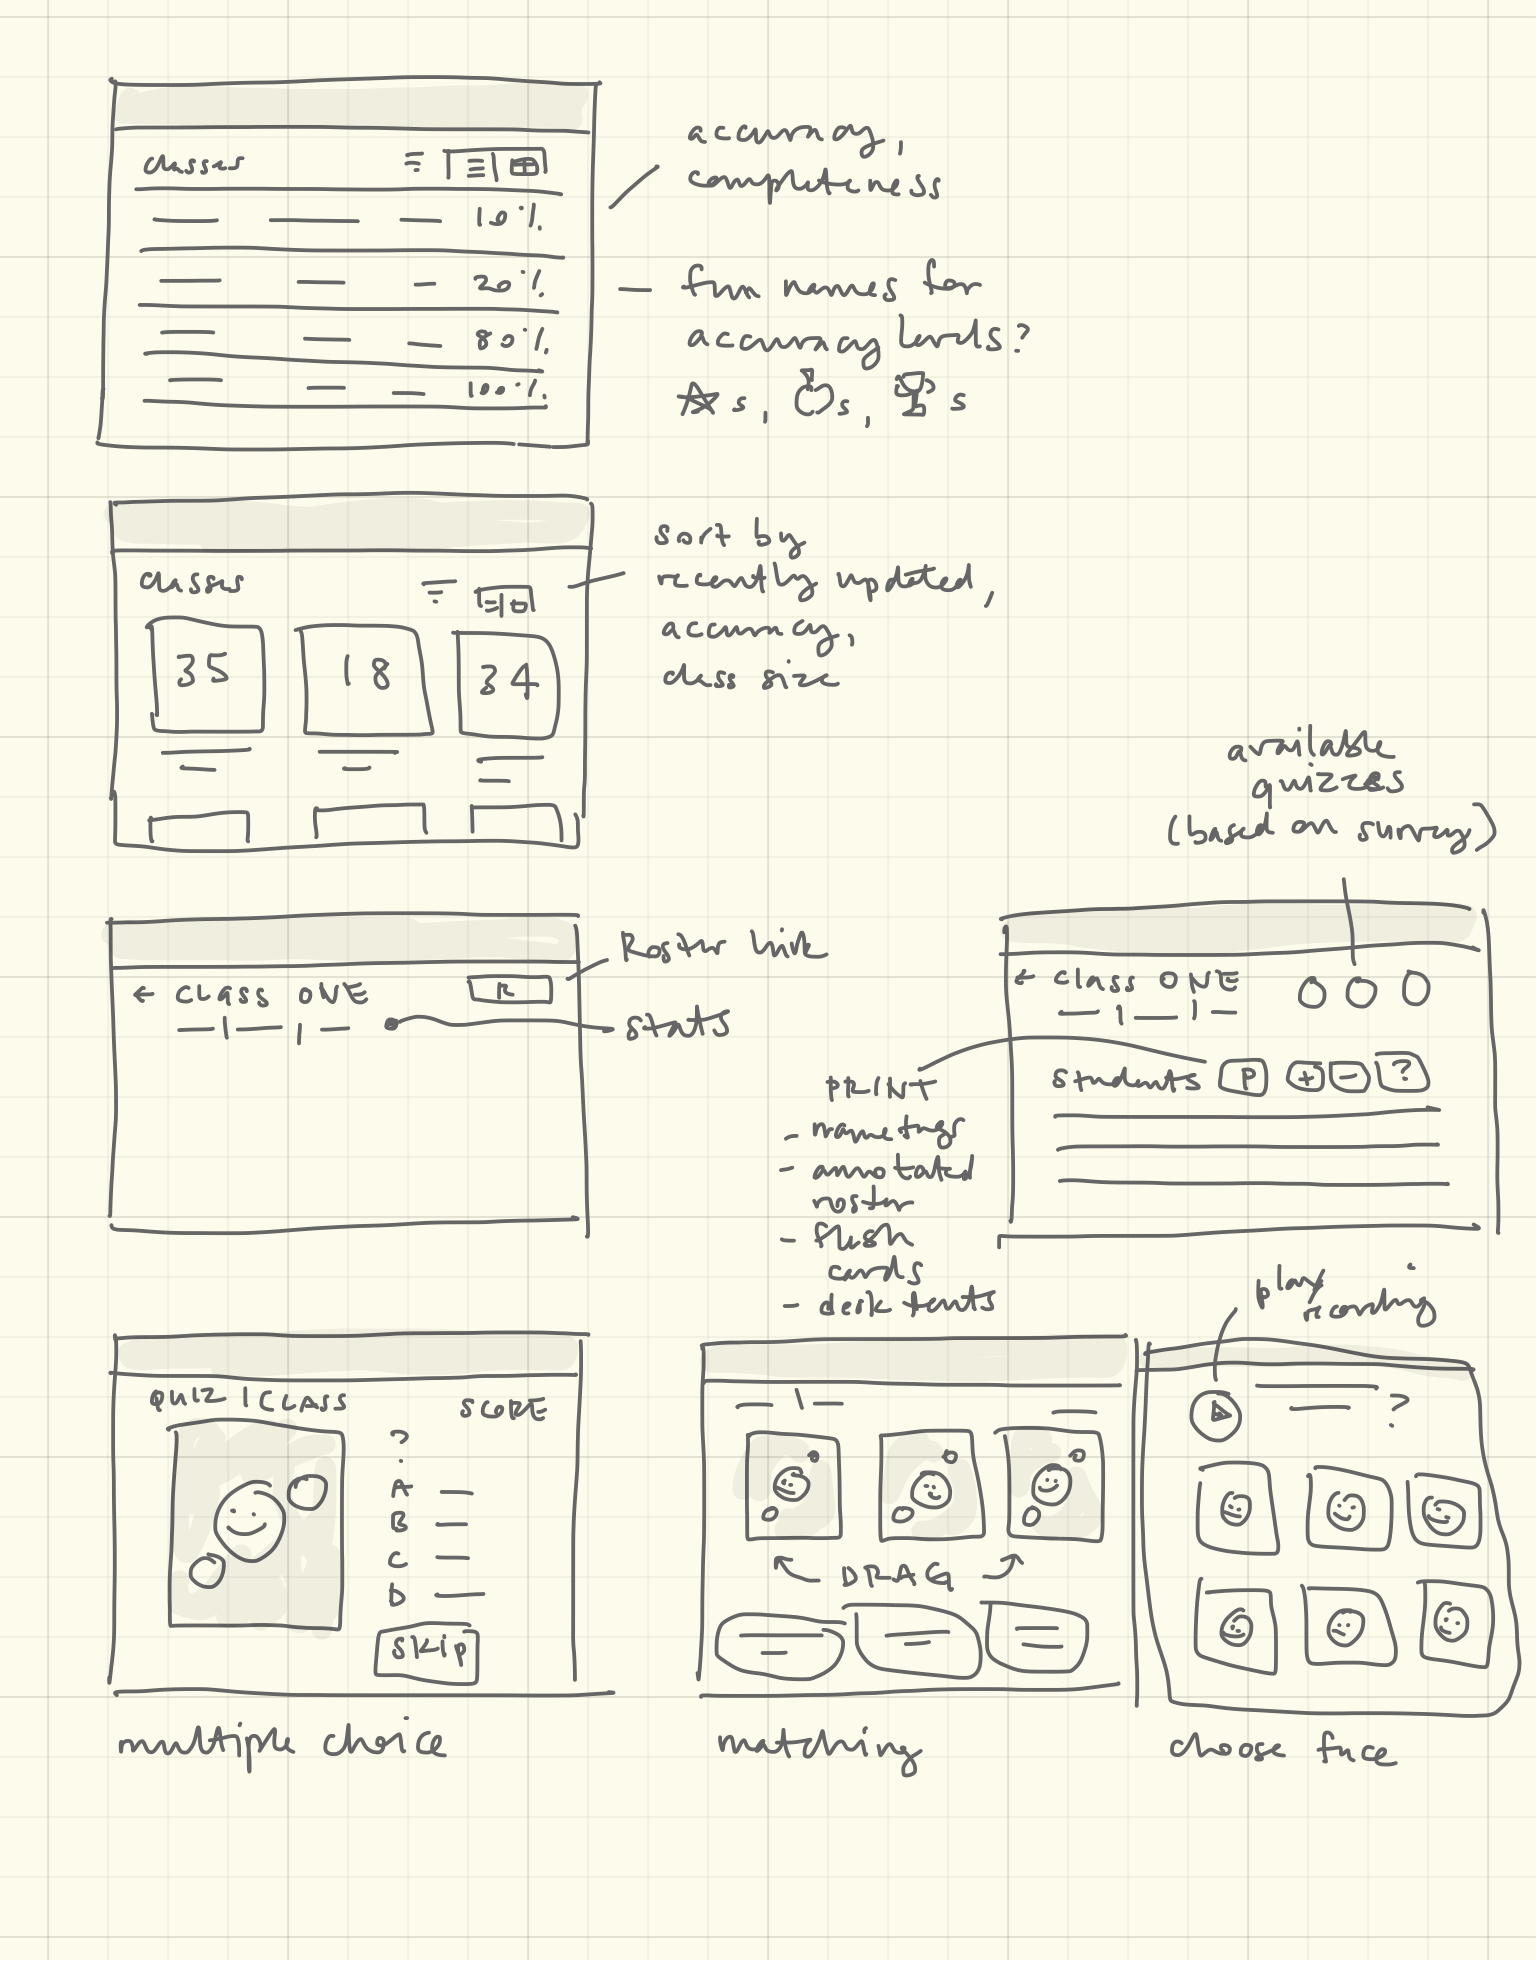 classes
10%
20%
80%
100%
accuracy,
completeness
— fun names for
accuracy levels?
s, s, s
classes
35 18 34
sort by
recently updated,
accuracy,
class size
available
quizzes
(based on survey)
← CLASS ONE R
Roster link
stats
← CLASS ONE
students P + - ?
PRINT
- nametags
- annotated
roster
- flash
cards
- desk tents
QUIZ | CLASS SCORE
?
A
B
C
D
Skip
multiple choice
DRAG
matching
play
recording
?
choose face